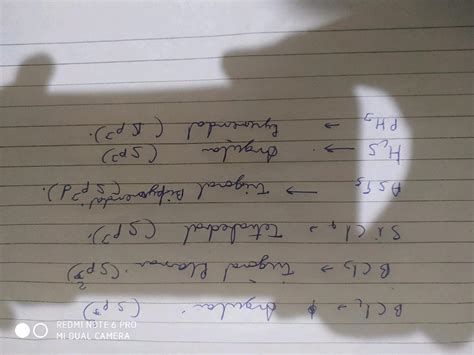 BCl₂ → Angular
BCl₃ → Trigonal Planar (Sp²)
SiCl₄ → Tetraledral (Sp³).
AsF₅ → Trigonal (Sp³d).
H₂S → Angular (Sp³)
PH₃ → (Sp³).
REDMI NOTE 6 PRO
MI DUAL CAMERA